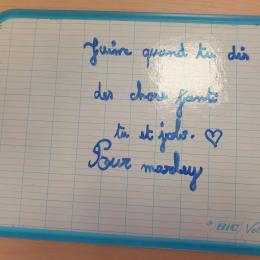 J'aime quand tu dis
des chose genti
tu et jolo. ♡
Pour marley
BIC Vel